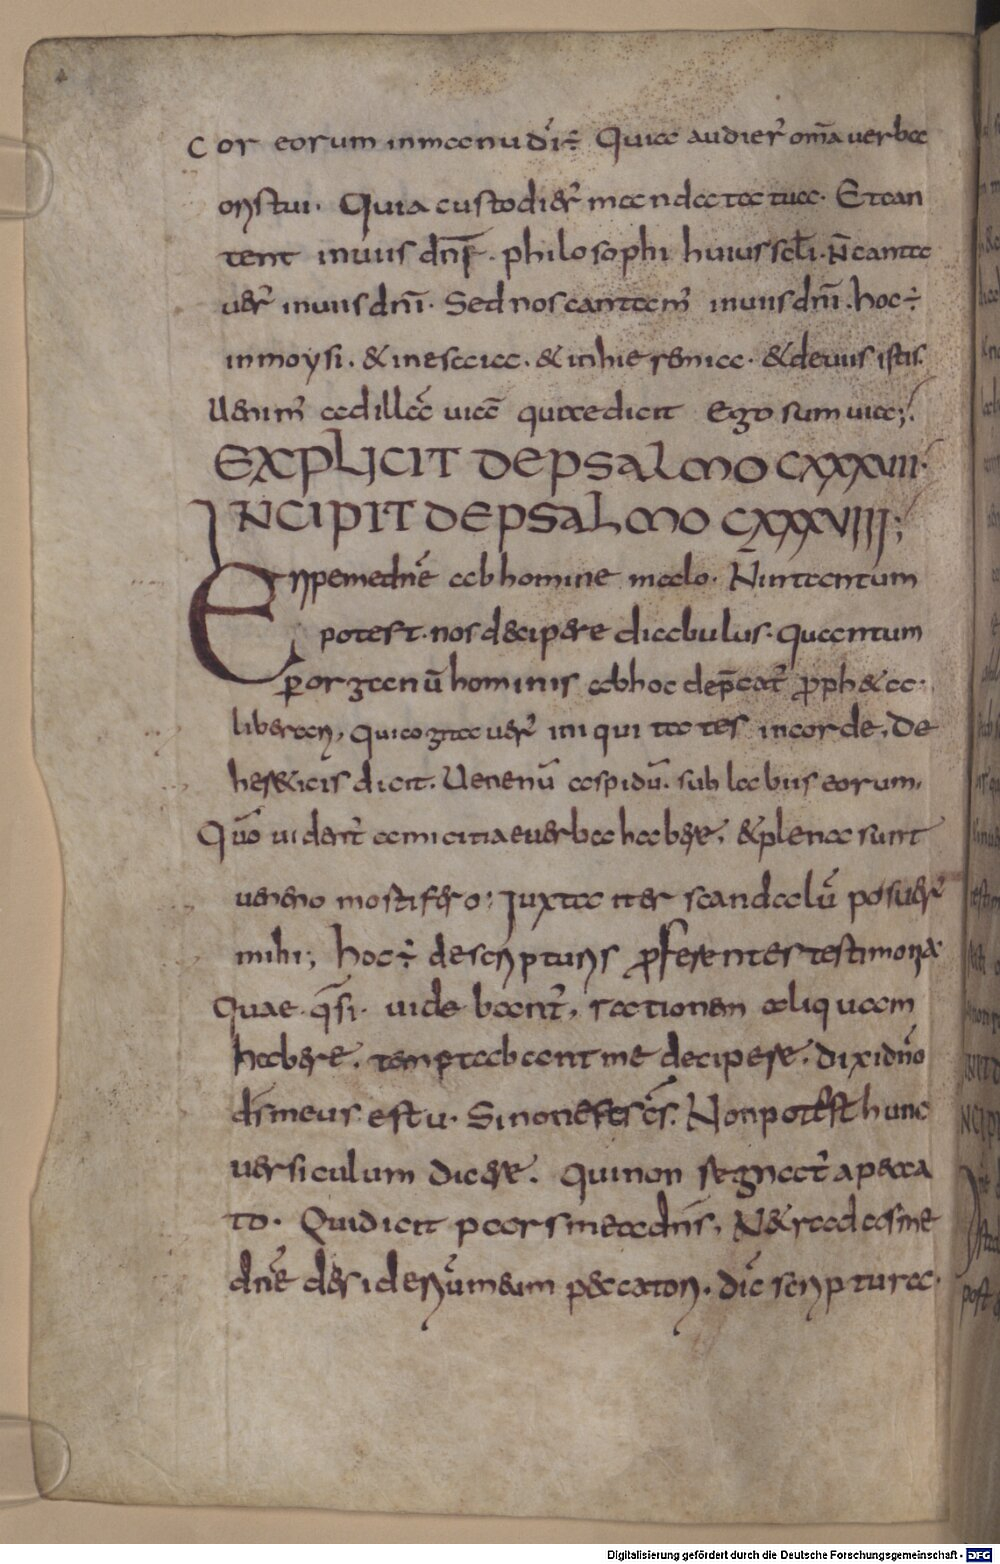 cor eorum inmanu dī÷ Quia audier̄ om̄a uerba
oristui. Quia custodier̄ mandata tua. Etcan
tent inuiis dn̄i. philosophi huius sc̄li. N̄canta
uer̄ inuiis dn̄i. Sed nos cantam̄ inuiis dn̄i. hoc÷
inmoysi. & inesaia. & inhieremia. & deuiis istis.
Uenim̄ adillā uiā quae dicit Ego sum uia;
EXPLICIT DEPSALMO CXXXVII.
INCIPIT DEPSALMO CXXXVIII;
Eripemedn̄e abhomine malo. Nūntantum
potest. nos decipere diabulus. quantum
per organū hominis abhoc dep̄cat̄ propheta.
liberari, quicogitauer̄ iniquitates incorde, De
hereticis dicit. Uenenū aspidū. sub labiis eorum,
Quō uident̄ amicitiae uerba habere, & plena sunt
ueneno mostifero: Juxta iter scandalū posuer̄
mihi; hoc÷ descripturis proferentes testimonia
Quae. q̄si. uidebant̄, rationem aliquam
habere, temptabant me decipere, dixi dn̄o
ds̄meus estu. Sinonestsc̄s. Nonpotest hunc
uersiculum dicere. quinon regnat̄ apecca
to. Quidicit parsmeadn̄s, Ne tradasme
dn̄e desideriūmeum peccatori. dic̄ scriptura.
Digitalisierung gefördert durch die Deutsche Forschungsgemeinschaft - DFG